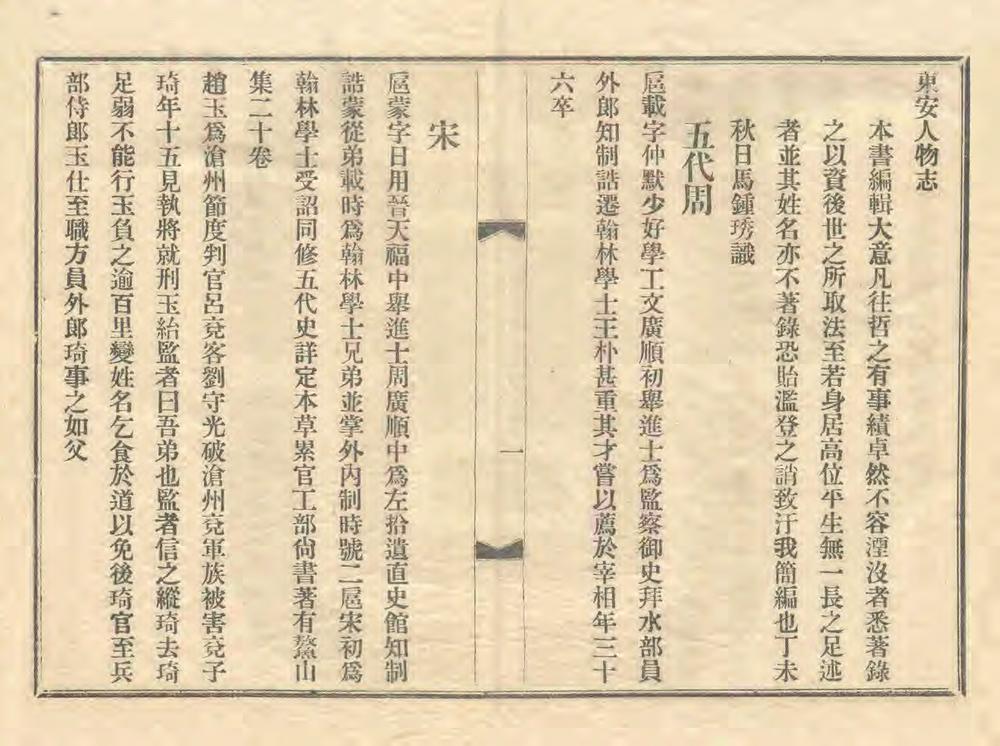 東安人物志
本書編輯大意凡往哲之有事績卓然不容湮沒者悉著錄
之以資後世之所取法至若身居高位平生無一長之足述
者並其姓名亦不著錄恐貽濫登之誚致汙我簡編也丁未
秋日馬鍾琇識
五代周
扈載字仲默少好學工文廣順初舉進士爲監察御史拜水部員
外郎知制誥遷翰林學士王朴甚重其才嘗以薦於宰相年三十
六卒
一
宋
扈蒙字日用晉天福中舉進士周廣順中爲左拾遺直史館知制
誥蒙從弟載時爲翰林學士兄弟並掌外內制時號二扈宋初爲
翰林學士受詔同修五代史詳定本草累官工部尙書著有鰲山
集二十卷
趙玉爲滄州節度判官呂兗客劉守光破滄州兗軍族被害兗子
琦年十五見執將就刑玉紿監者曰吾弟也監者信之縱琦去琦
足弱不能行玉負之逾百里變姓名乞食於道以免後琦官至兵
部侍郎玉仕至職方員外郎琦事之如父